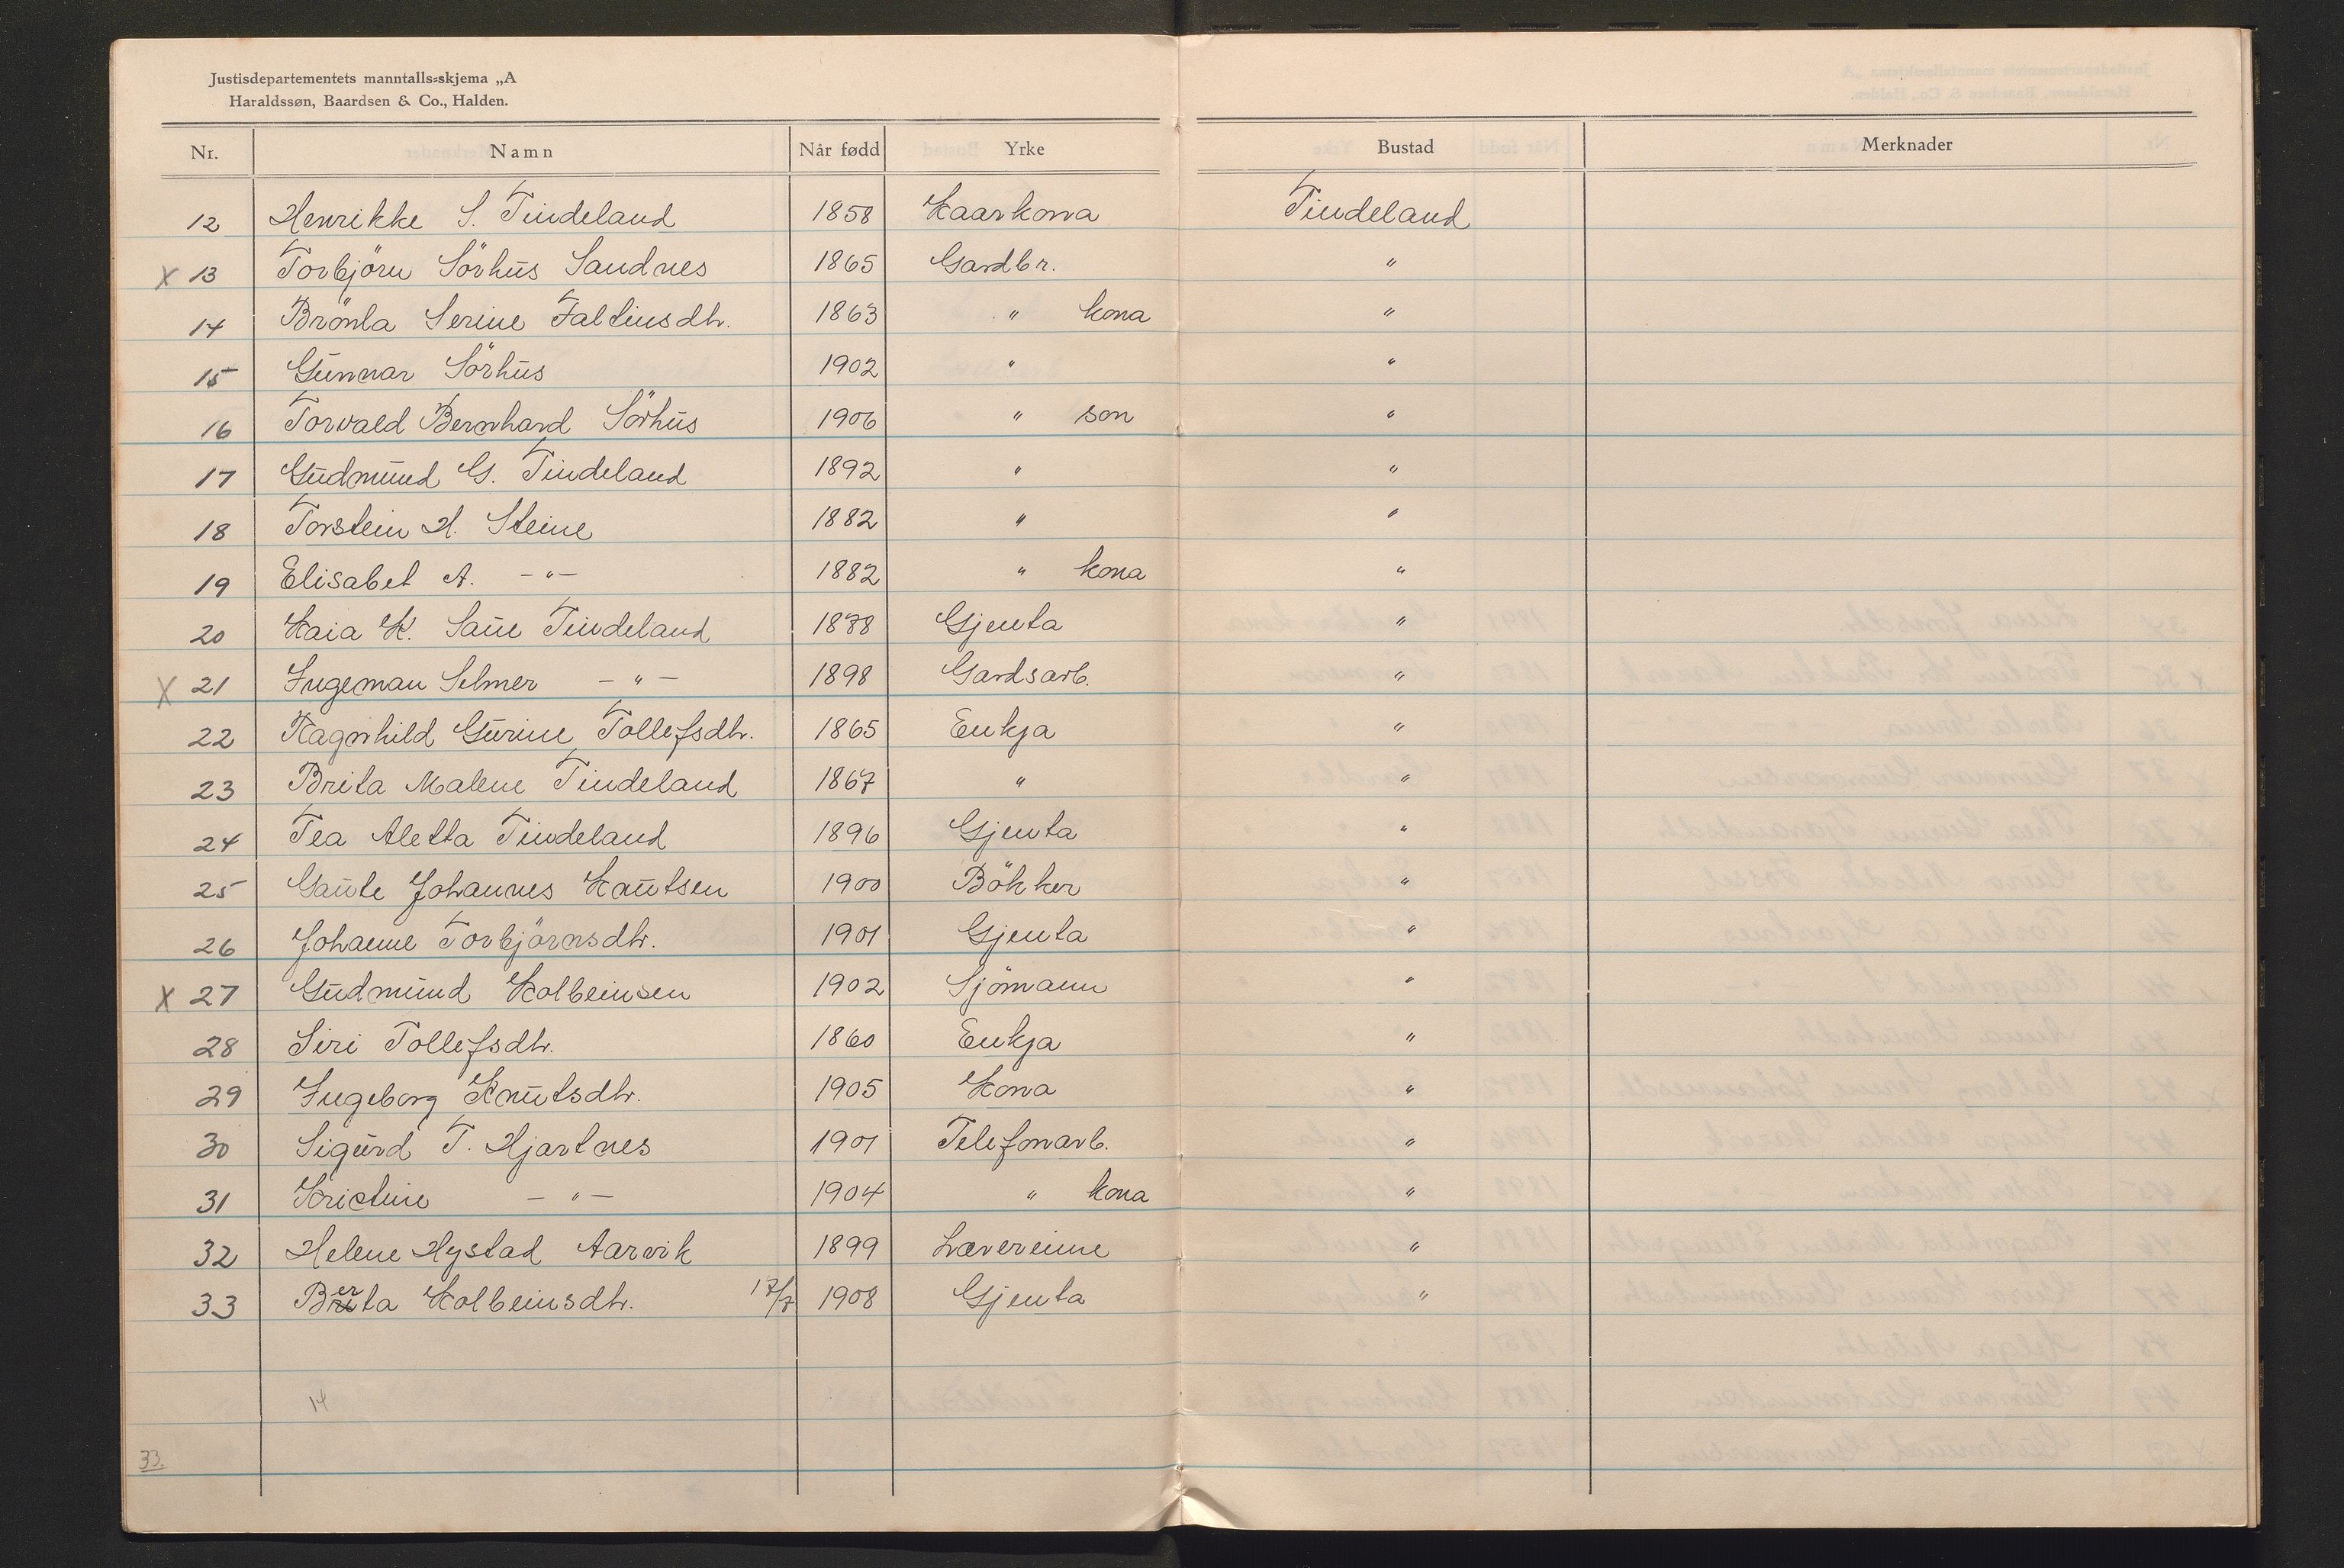 Justisdepartementets manntalls=skjema „A
Haraldssøn, Baardsen & Co., Halden.
Nr. Namn Når fødd Yrke Bustad Merknader
12 Henrikke S. Tindeland 1858 Kaarkona Tindeland
X 13 Torbjörn Sörhus Sandnes 1865 Gardbr. "
14 Brönla Serine Faltinsdtr. 1863 " kona "
15 Gunnar Sörhus 1902 " "
16 Torvald Bernhard Sörhus 1906 " son "
17 Gudmund G. Tindeland 1892 " "
18 Torstein H. Steine 1882 " "
19 Elisabet A. – " – 1882 " kona "
20 Kaia K. Saue Tindeland 1878 Gjenta "
X 21 Ingeman Selmer – " – 1898 Gardsarb. "
22 Ragnhild Gurine Tollefsdtr. 1865 Enkja "
23 Brita Malene Tindeland 1867 " "
24 Tea Aletta Tindeland 1896 Gjenta "
25 Gaute Johannes Knutsen 1900 Bökker "
26 Johanne Torbjörnsdtr. 1901 Gjenta "
X 27 Gudmund Kolbeinsen 1902 Sjömann "
28 Siri Tollefsdtr. 1860 Enkja "
29 Ingeborg Knutsdtr. 1905 Kona "
30 Sigurd T. Hjartnes 1901 Telefonarb. "
31 Kristine – " – 1904 " kona "
32 Helene Hystad Aarvik 1899 Lærerinne "
33 Berta Kolbeinsdtr. 17/7 1908 Gjenta "
14
33.